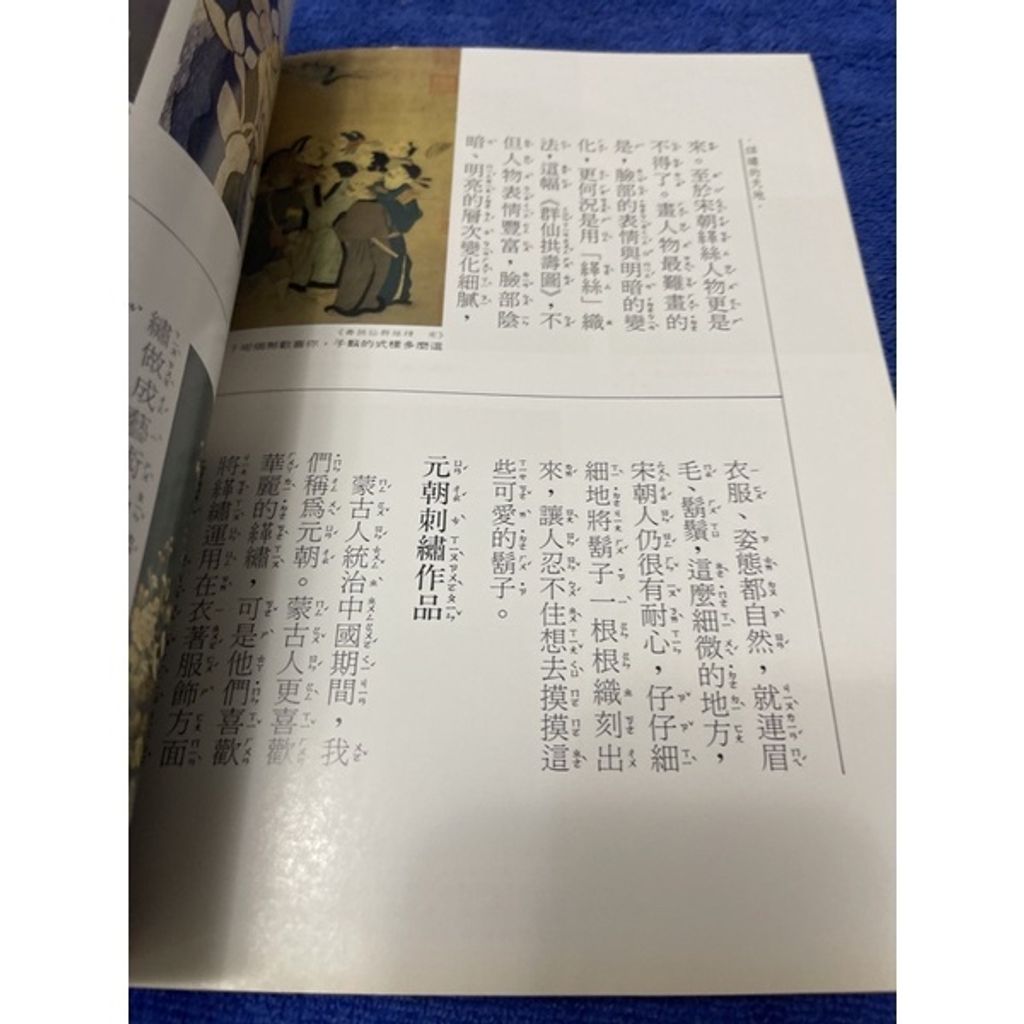 來。至於宋朝緙絲人物更是
不得了。畫人物最難畫的
是，臉部的表情與明暗的變
化，更何況是用「緙絲」織
法，這幅《群仙拱壽圖》，不
但人物表情豐富，臉部陰
暗、明亮的層次變化細膩，
衣服、姿態都自然，就連眉
毛、鬍鬚，這麼細微的地方，
宋朝人仍很有耐心，仔仔細
細地將鬍子一根根織刻出
來，讓人忍不住想去摸摸這
些可愛的鬍子。
元朝刺繡作品
蒙古人統治中國期間，我
們稱為元朝。蒙古人更喜歡
華麗的緙繡，可是他們喜歡
將緙繡運用在衣著服飾方面
繡做成藝術